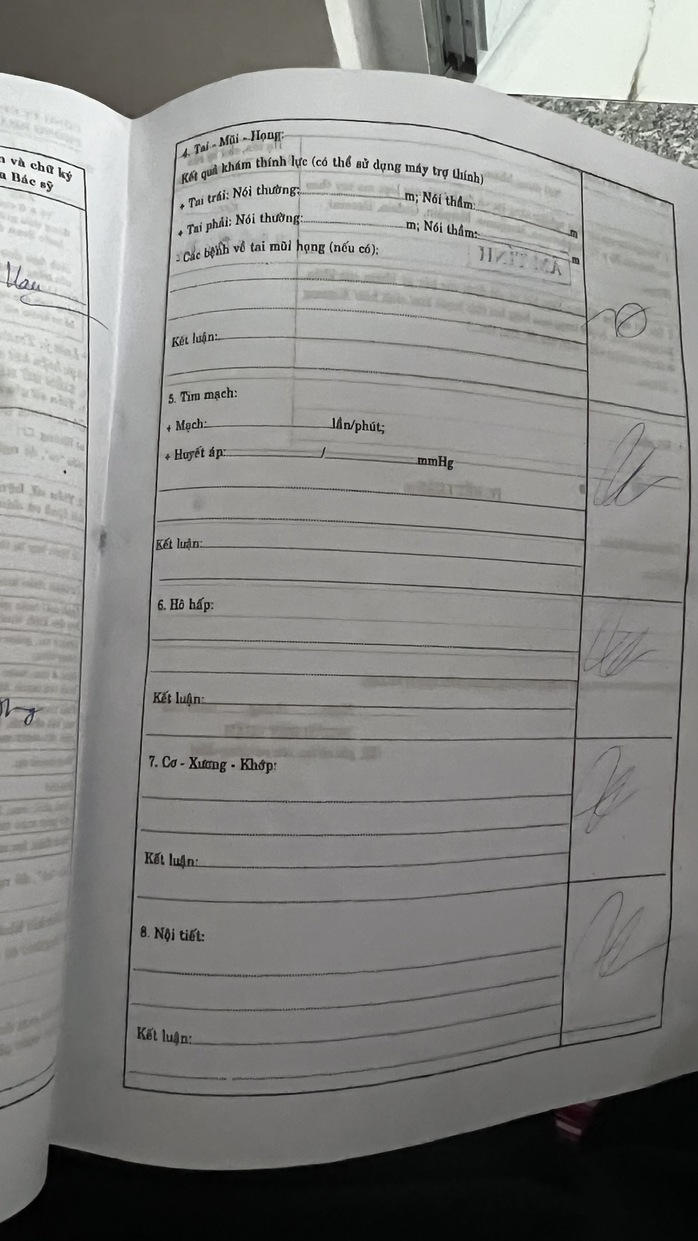 và chữ ký
Bác sỹ
4. Tai - Mũi - Họng:
Kết quả khám thính lực (có thể sử dụng máy trợ thính)
+ Tai trái: Nói thường: m; Nói thầm: m
+ Tai phải: Nói thường: m; Nói thầm: m
- Các bệnh về tai mũi họng (nếu có):
ÂM TÍNH
Kết luận:
5. Tim mạch:
+ Mạch: lần/phút;
+ Huyết áp: / mmHg
Kết luận:
6. Hô hấp:
Kết luận:
7. Cơ - Xương - Khớp:
Kết luận:
8. Nội tiết:
Kết luận: